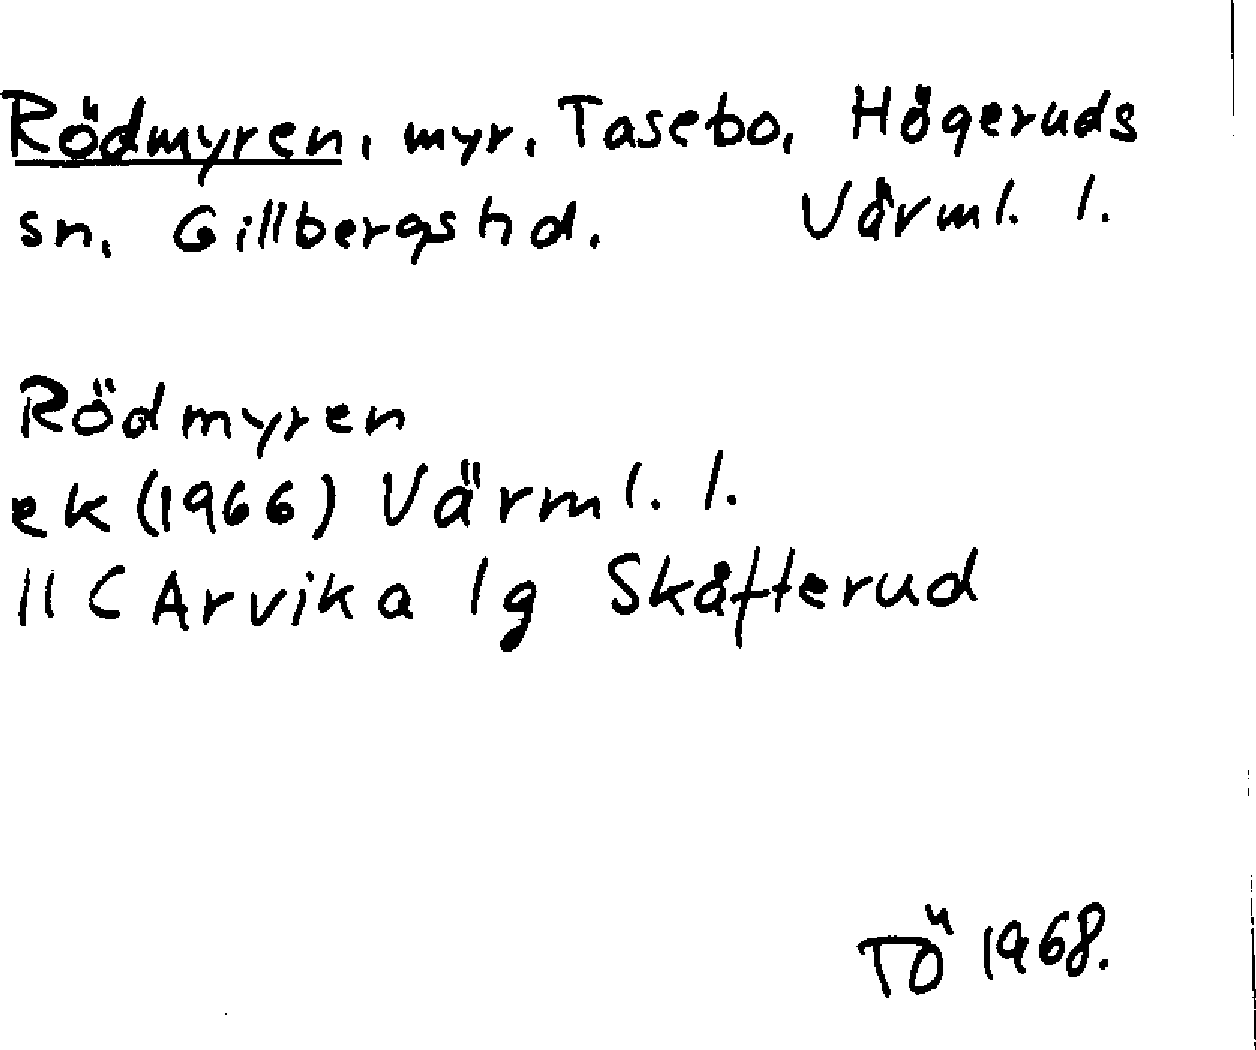 Rödmyren, myr, Tasebo, Högeruds
sn, Gillbergs hd. Värml. l.
Rödmyren
ek (1966) Värml. l.
11 C Arvika 1g Skåfterud
TÖ 1968.